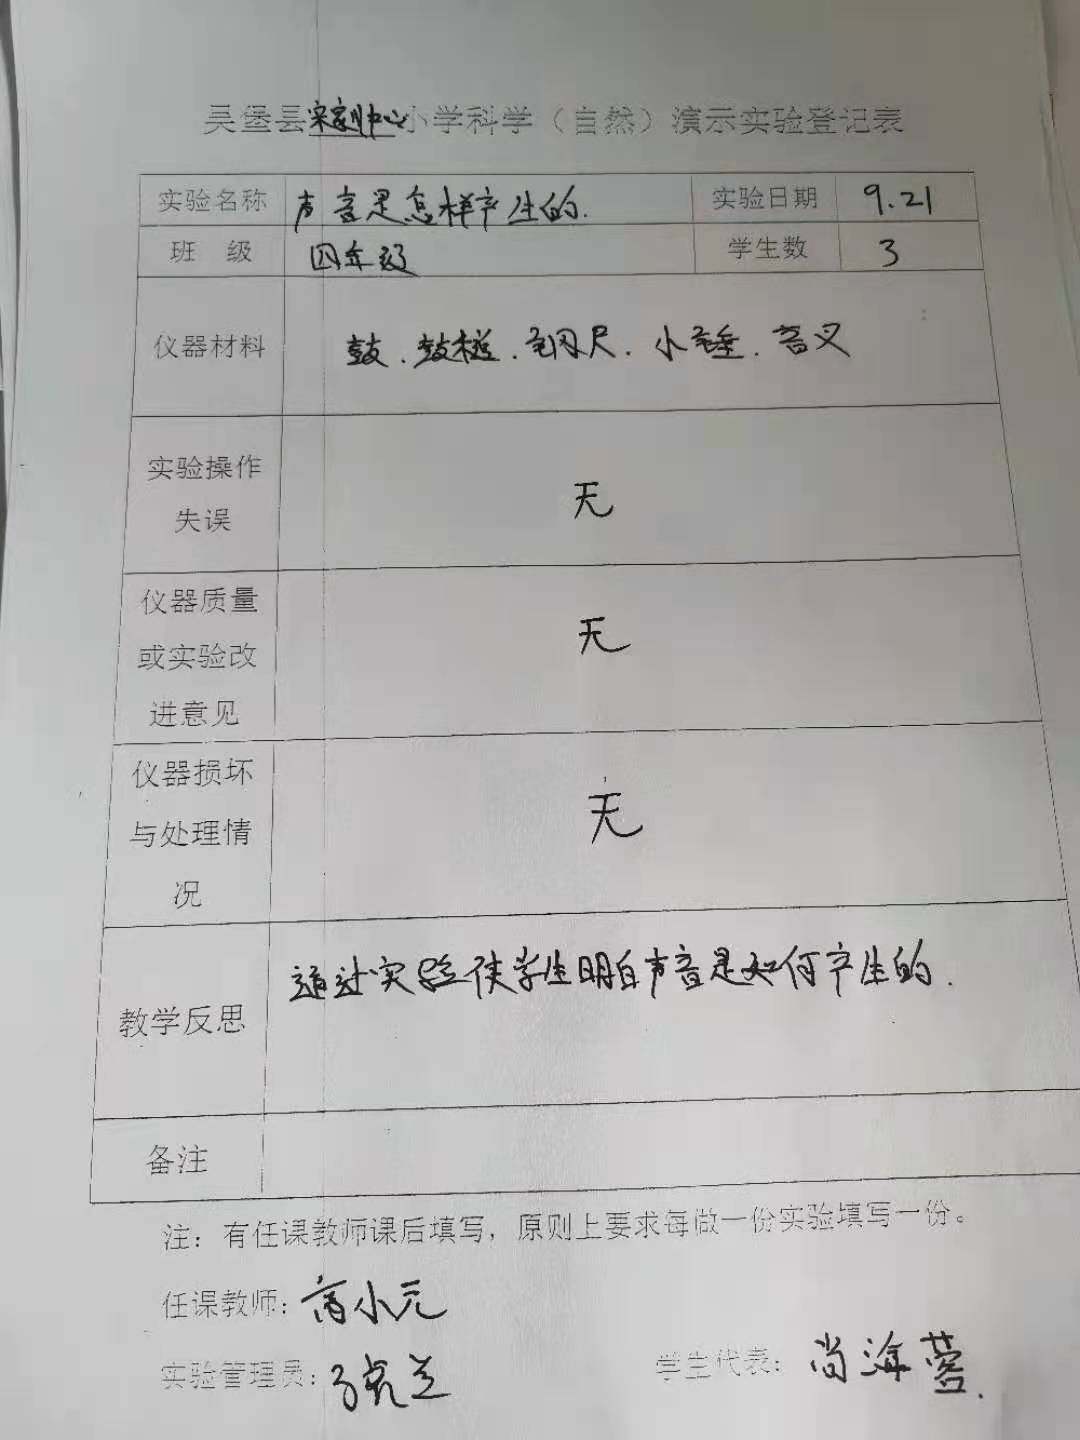 吴堡县宋家川中心小学科学（自然）演示实验登记表
实验名称 声音是怎样产生的. 实验日期 9.21
班 级 四年级 学生数 3
仪器材料 鼓.鼓槌.钢尺.小锤.音叉
实验操作
失误
无
仪器质量
或实验改
进意见
无
仪器损坏
与处理情
况
无
教学反思 通过实验使学生明白声音是如何产生的.
备注
注：有任课教师课后填写，原则上要求每做一份实验填写一份。
任课教师：高小元
实验管理员：
学生代表：尚海蓉.